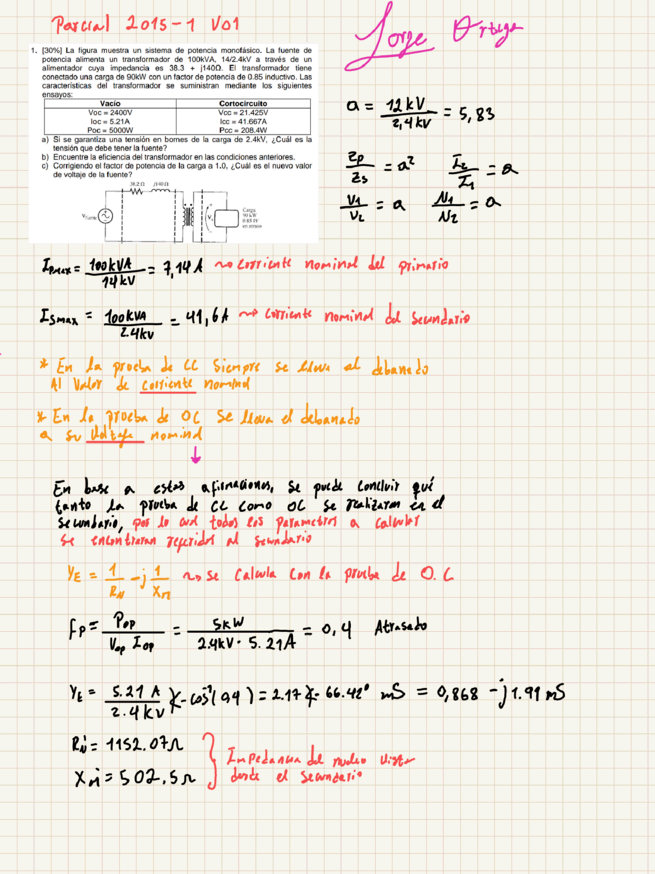 Parcial 2015-1 V01
Jorge Ortega
1. [30%] La figura muestra un sistema de potencia monofásico. La fuente de
potencia alimenta un transformador de 100kVA, 14/2.4kV a través de un
alimentador cuya impedancia es 38.3 + j140Ω. El transformador tiene
conectado una carga de 90kW con un factor de potencia de 0.85 inductivo. Las
características del transformador se suministran mediante los siguientes
ensayos:
Vacío Cortocircuito
Voc = 2400V Vcc = 21.425V
Ioc = 5.21A Icc = 41.667A
Poc = 5000W Pcc = 208.4W
a) Si se garantiza una tensión en bornes de la carga de 2.4kV, ¿Cuál es la
tensión que debe tener la fuente?
b) Encuentre la eficiencia del transformador en las condiciones anteriores.
c) Corrigiendo el factor de potencia de la carga a 1.0, ¿Cuál es el nuevo valor
de voltaje de la fuente?
38.2 Ω j140 Ω
V fuente
Carga
90 kW
0.85 fP
en atraso
a = 12 kV / 2,4 kV = 5,83
Zp / Zs = a² I2 / I1 = a
V1 / V2 = a N1 / N2 = a
Ipmax = 100kVA / 14 kV = 7,14 A ~> Corriente nominal del primario
Ismax = 100kVA / 2.4kV = 41,6A ~> Corriente nominal del Secundario
* En la prueba de CC Siempre se lleva el debanado
Al Valor de corriente nominal
* En la prueba de OC Se lleva el debanado
a su Voltaje nominal
↓
En base a estas afirmaciones, Se puede Concluir qué
tanto la prueba de CC como OC se realizaron en el
Secundario, por lo cual todos los parametros a calcular
Se encontraran referidos al Secundario
YE = 1 / RN - j 1 / XM ~> Se Calcula Con la prueba de O.C
Fp = Pop / Vop Iop = 5kW / 2.4kV · 5.21A = 0,4 Atrasado
YE = 5.21 A / 2.4 kV ∡-cos⁻¹(0,4) = 2.17 ∡-66.42° mS = 0,868 - j1.99 mS
RN' = 1152.07Ω
XM' = 502.5Ω
} Impedancia del nucleo vista
desde el Secundario